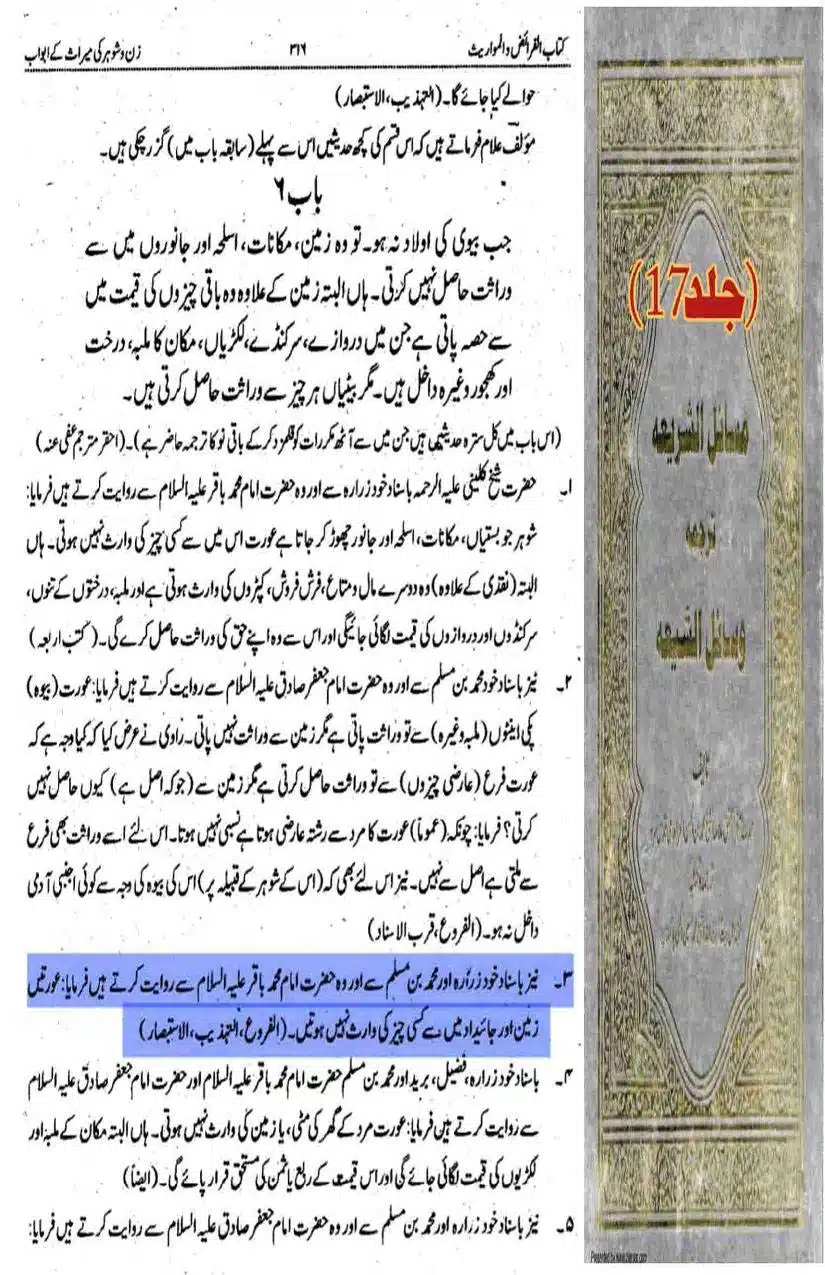 کتاب الفرائض والمواریث
۳۱۶
زن و شوہر کی میراث کے ابواب
حوالے کیا جائے گا۔ (التہذیب، الاستبصار)
مؤلف علام فرماتے ہیں کہ اس قسم کی کچھ حدیثیں اس سے پہلے (سابقہ باب میں) گزر چکی ہیں۔
باب ۶
جب بیوی کی اولاد نہ ہو۔ تو وہ زمین، مکانات، اسلحہ اور جانوروں میں سے
وراثت حاصل نہیں کرتی۔ ہاں البتہ زمین کے علاوہ وہ باقی چیزوں کی قیمت میں
سے حصہ پاتی ہے جن میں دروازے، سرکنڈے، لکڑیاں، مکان کا ملبہ، درخت
اور کھجور وغیرہ داخل ہیں۔ مگر بیٹیاں ہر چیز سے وراثت حاصل کرتی ہیں۔
(اس باب میں کل سترہ حدیثیں ہیں جن میں سے آٹھ مکررات کو قلمزد کرکے باقی نو کا ترجمہ حاضر ہے)۔ (احقر مترجم عفی عنہ)
۱۔ حضرت شیخ کلینی علیہ الرحمہ باسناد خود زرارہ سے اور وہ حضرت امام محمد باقر علیہ السلام سے روایت کرتے ہیں فرمایا:
شوہر جو بستیاں، مکانات، اسلحہ اور جانور چھوڑ کر جاتا ہے عورت اس میں سے کسی چیز کی وارث نہیں ہوتی۔ ہاں
البتہ (نقدی کے علاوہ) وہ دوسرے مال و متاع، فرش فروش، کپڑوں کی وارث ہوتی ہے اور ملبہ، درختوں کے تنوں،
سرکنڈوں اور دروازوں کی قیمت لگائی جائیگی اور اس سے وہ اپنے حق کی وراثت حاصل کرے گی۔ (کتب اربعہ)
۲۔ نیز باسناد خود محمد بن مسلم سے اور وہ حضرت امام جعفر صادق علیہ السلام سے روایت کرتے ہیں فرمایا: عورت (بیوہ)
پکی اینٹوں (ملبہ وغیرہ) سے تو وراثت پاتی ہے مگر زمین سے وراثت نہیں پاتی۔ راوی نے عرض کیا کہ کیا وجہ ہے کہ
عورت فرع (عارضی چیزوں) سے تو وراثت حاصل کرتی ہے مگر زمین سے (جو کہ اصل ہے) کیوں حاصل نہیں
کرتی؟ فرمایا: چونکہ (عموماً) عورت کا مرد سے رشتہ عارضی ہوتا ہے نسبی نہیں ہوتا۔ اس لئے اسے وراثت بھی فرع
سے ملتی ہے اصل سے نہیں۔ نیز اس لئے بھی کہ (اس کے شوہر کے قبیلہ پر) اس کی بیوہ کی وجہ سے کوئی اجنبی آدمی
داخل نہ ہو۔ (الفروع، قرب الاسناد)
۳۔ نیز باسناد خود زرارہ اور محمد بن مسلم سے اور وہ حضرت امام محمد باقر علیہ السلام سے روایت کرتے ہیں فرمایا: عورتیں
زمین اور جائیداد میں سے کسی چیز کی وارث نہیں ہوتیں۔ (الفروع، التہذیب، الاستبصار)
۴۔ باسناد خود زرارہ، فضیل، برید اور محمد بن مسلم حضرت امام محمد باقر علیہ السلام اور حضرت امام جعفر صادق علیہ السلام
سے روایت کرتے ہیں فرمایا: عورت مرد کے گھر کی مٹی، یا زمین کی وارث نہیں ہوتی۔ ہاں البتہ مکان کے ملبہ اور
لکڑیوں کی قیمت لگائی جائے گی اور اس قیمت کے ربع یا ثمن کی مستحق قرار پائے گی۔ (ایضاً)
۵۔ نیز باسناد خود زرارہ اور محمد بن مسلم سے اور وہ حضرت امام جعفر صادق علیہ السلام سے روایت کرتے ہیں فرمایا:
(جلد17)
مسائل الشریعہ
ترجمہ
وسائل الشیعہ